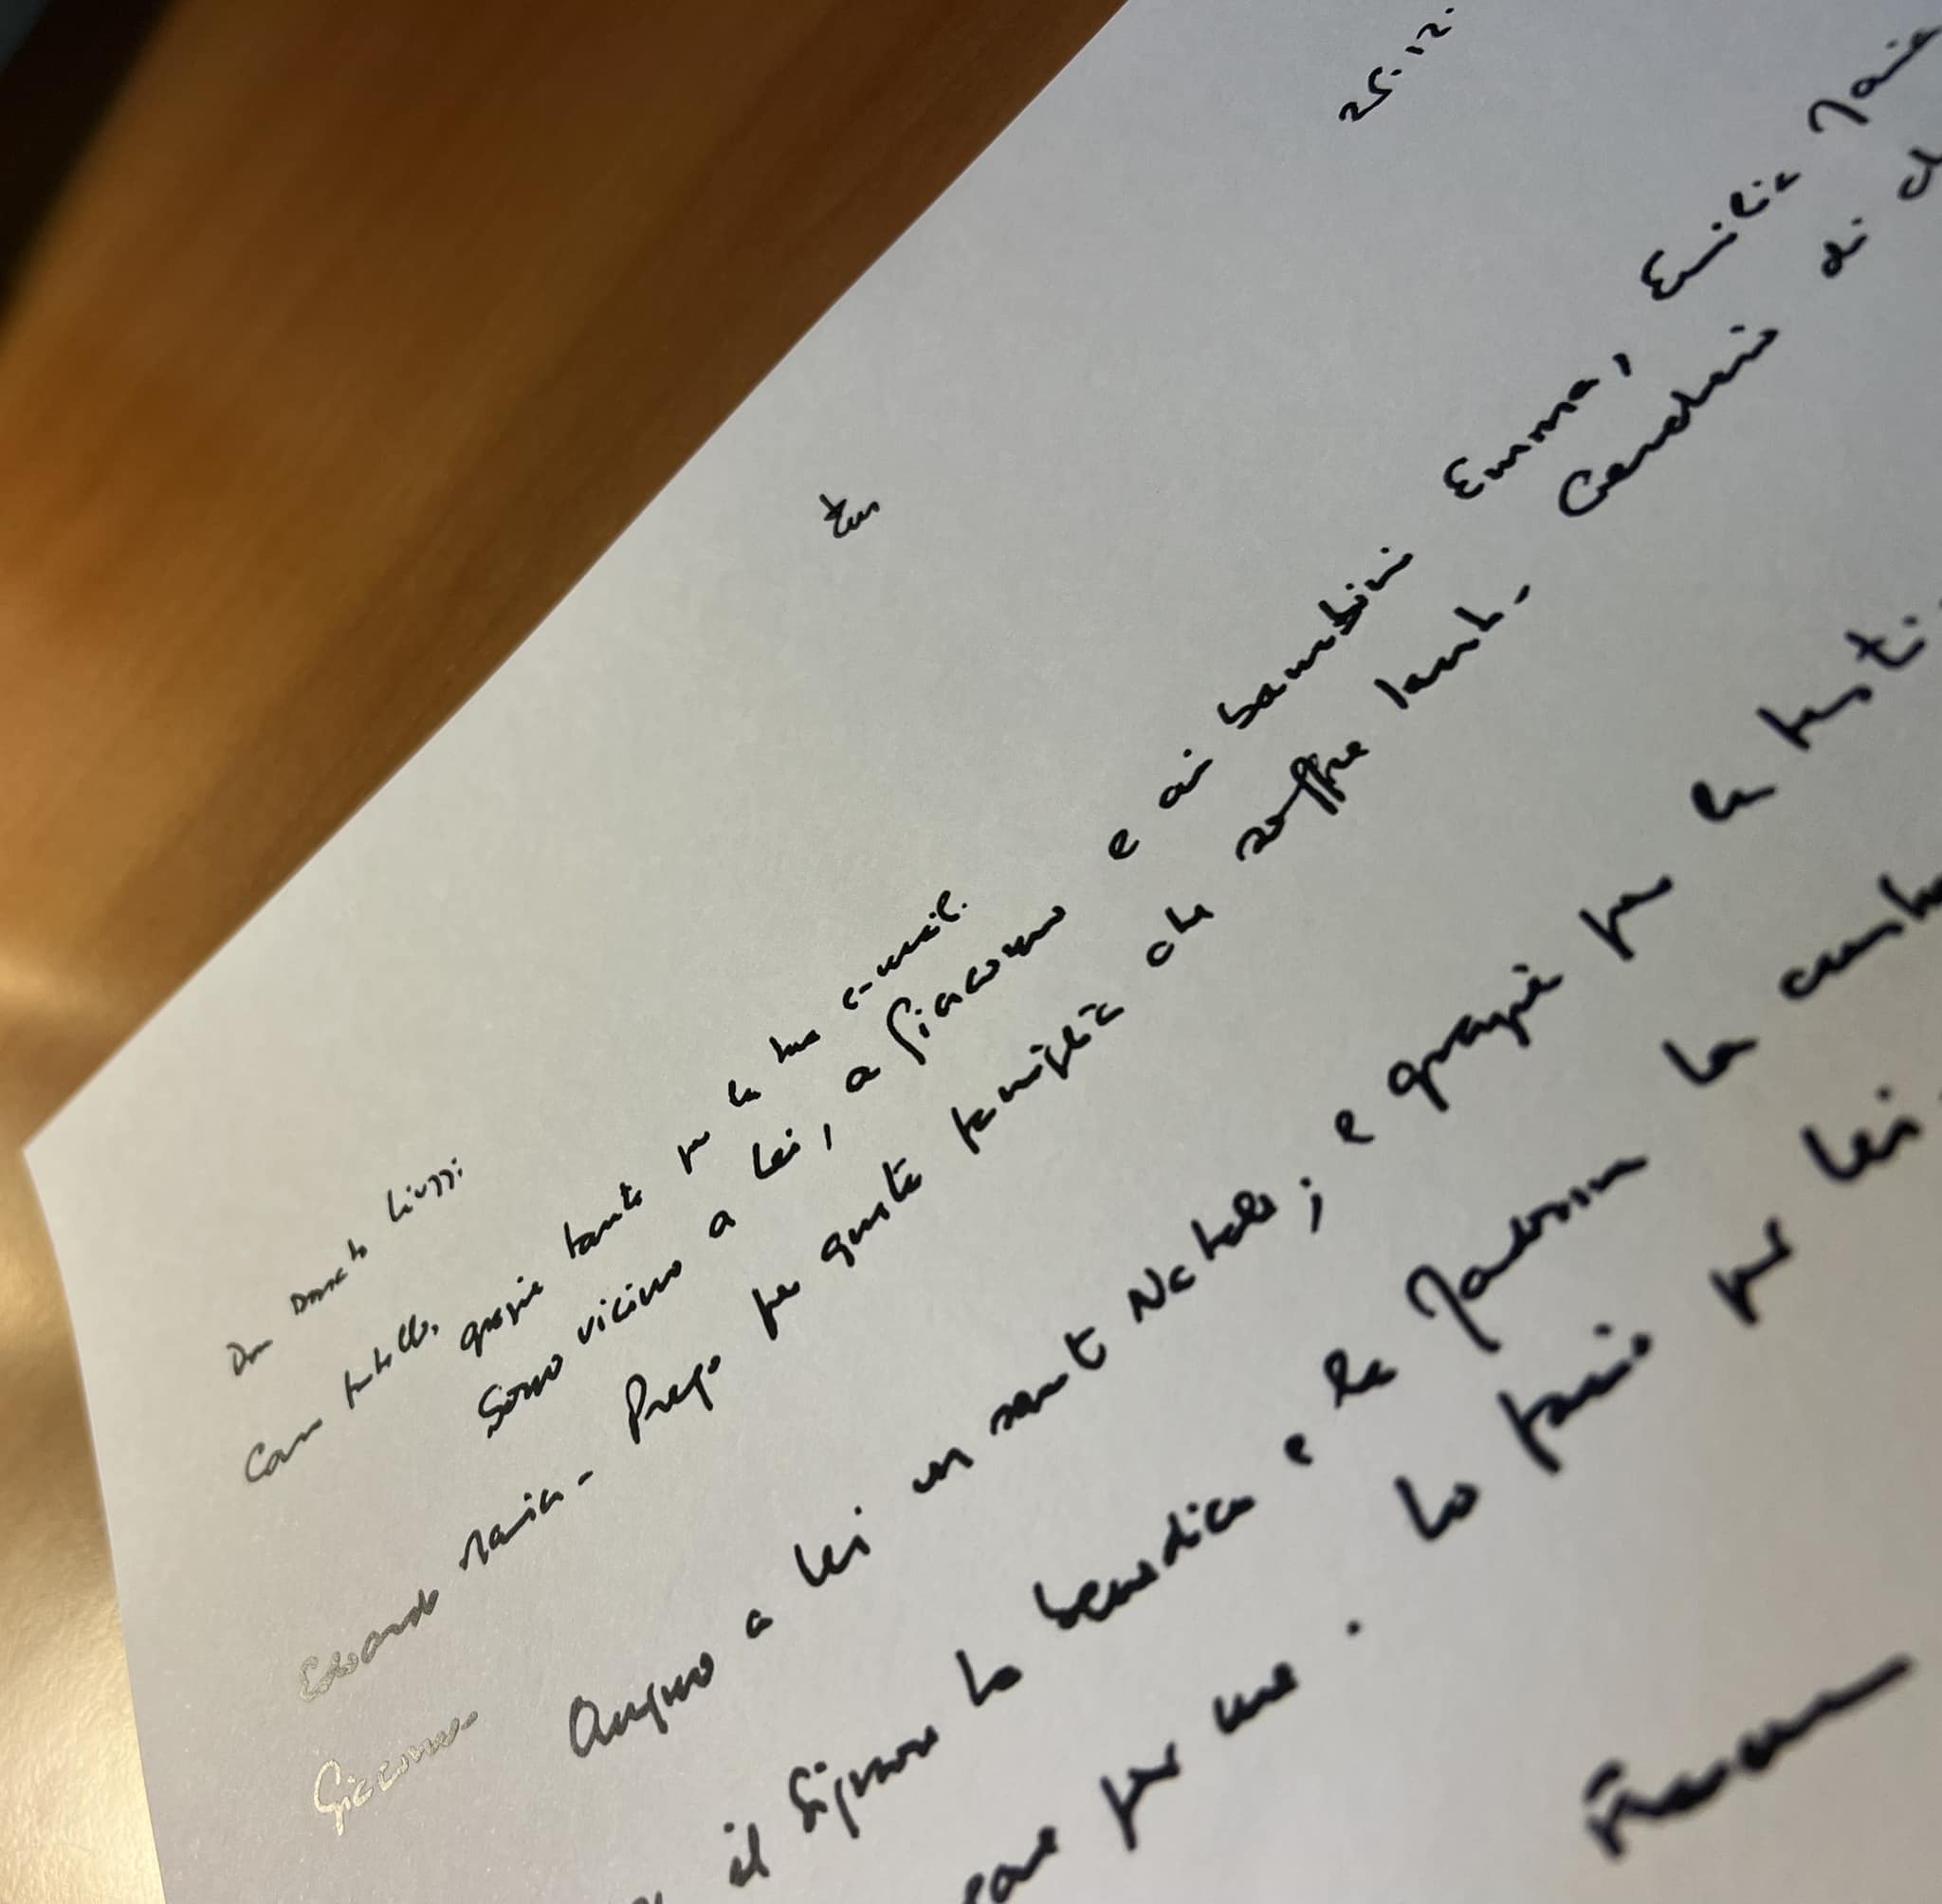 25.12.
Don Donato Liuzzi
Caro fratello, grazie tante per la tua e-mail.
Sono vicino a lei, a Giacomo e ai bambini Emma, Emilia Maria
Edoardo Maria - Prego per questa famiglia che soffre tanto - Condivido di
Giacomo -
Auguro a lei un santo Natale; e grazie per la testi
il Signore lo benedica e la Madonna lo
per me. Lo faccio per lei.
Francesco